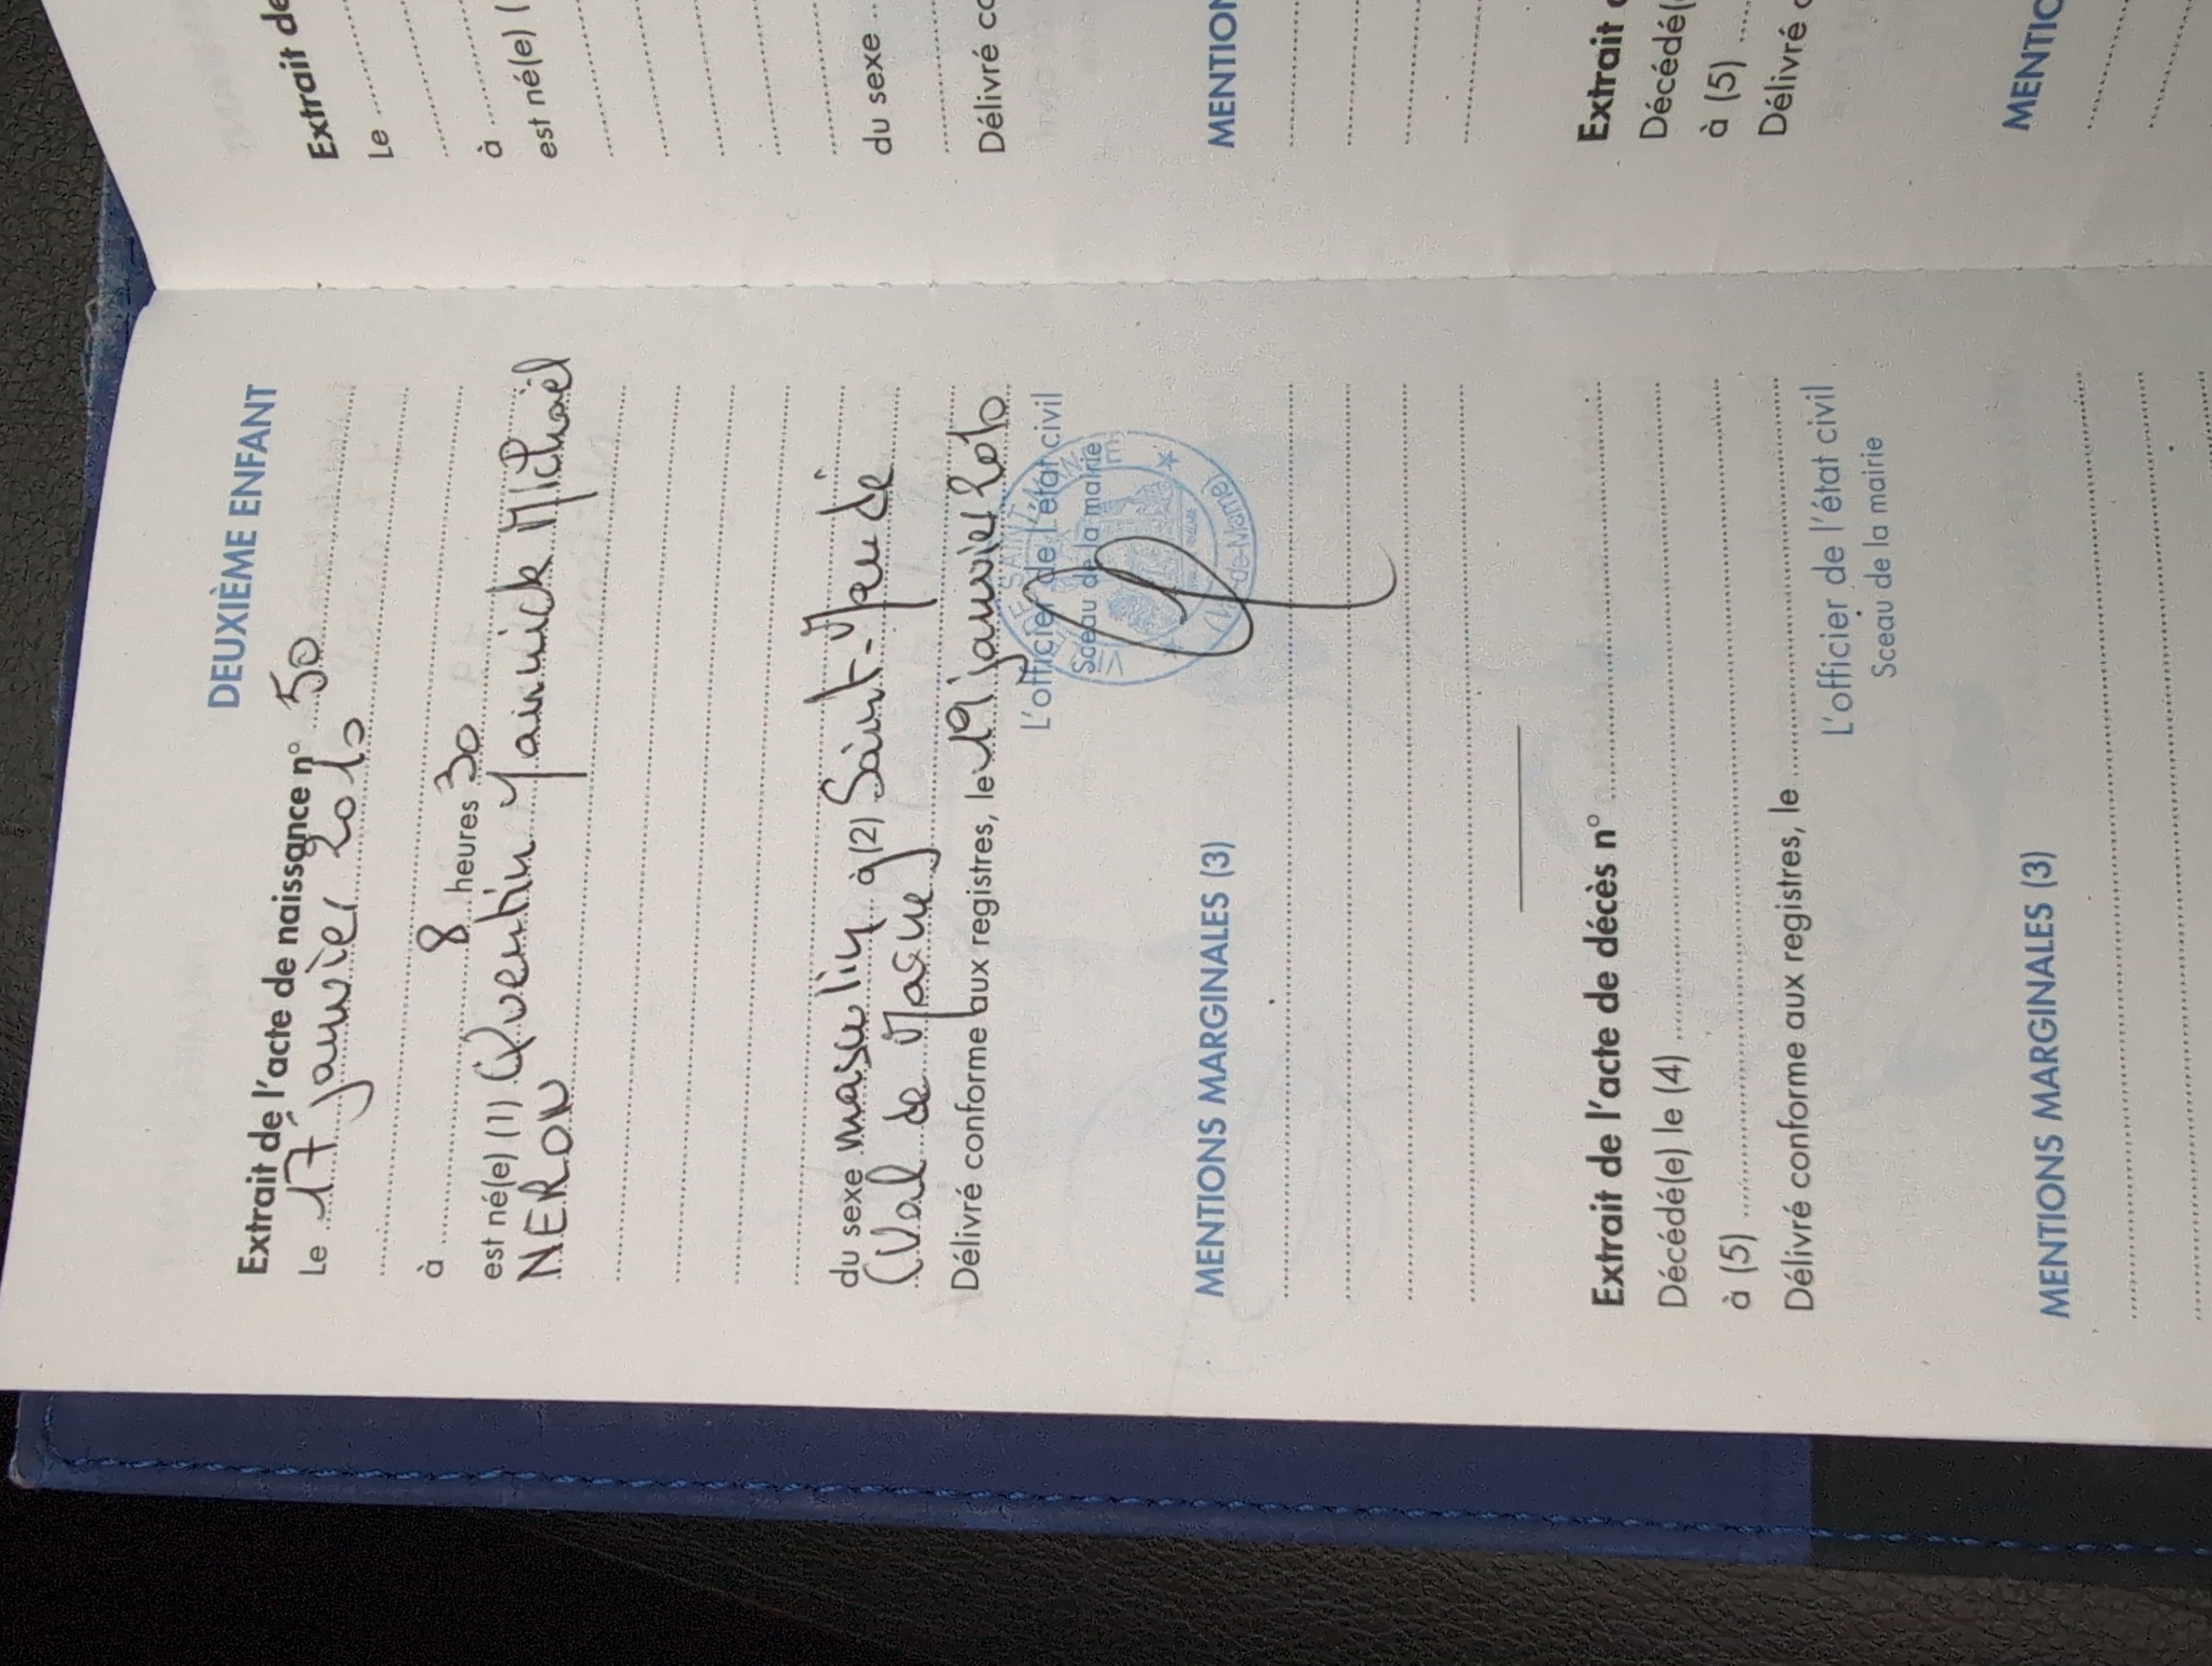 DEUXIÈME ENFANT
Extrait de l'acte de naissance n° 50
Le 17 janvier 2010
à 8 heures 30
est né(e) (1) Quentin Yannick Michaël
NERON
du sexe masculin à (2) Saint-Mandé
(Val de Marne)
Délivré conforme aux registres, le 19 janvier 2010
L'officier de l'état civil
Sceau de la mairie
de-Marne)
MENTIONS MARGINALES (3)
Extrait de l'acte de décès n°
Décédé(e) le (4)
à (5)
Délivré conforme aux registres, le
L'officier de l'état civil
Sceau de la mairie
MENTIONS MARGINALES (3)
Extrait de
Le
à
est né(e) (
du sexe
Délivré co
MENTION
Extrait d
Décédé(
à (5)
Délivré c
MENTIO